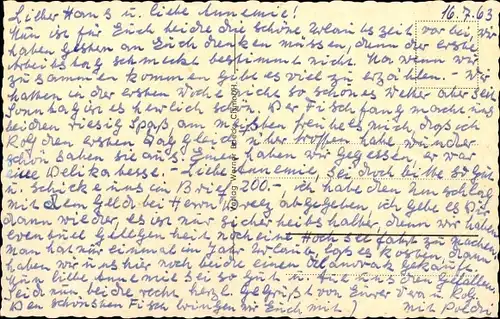 Lieber Hans u. liebe Annemie! 16.7.63
Nun ist für Euch beide die schöne Urlaubszeit vorbei, wir
haben gestern an Euch denken müssen, denn der erste
Arbeitstag schmeckt bestimmt nicht. Na wenn wir
zusammen kommen gibt es viel zu erzählen. - Wir
hatten in der ersten Woche nicht so schönes Wetter aber seit
Sonntag ist es herrlich schön. Der Fischfang macht uns
beiden riesig Spaß, am meisten freute es mich, daß ich
Rolf den ersten Aal gleich haben wir
schön sahen sie aus. Einen haben wir gegessen, er war
eine Delikatesse. - Liebe Annemie, sei doch bitte so gut
u. schicke uns im Brief 200.- ich habe den Umschlag
mit dem Geld bei Herrn abgegeben ich gebe es Dir
dann wieder, es ist nur sicherheitshalber, denn wir haben
eventuell Gelegenheit noch eine Hochseefahrt zu machen
man hat nur einmal im Jahr Urlaub laß es kosten, dann
haben wir uns hier noch beide einen gekauft.
Nun liebe Annemie sei so gut u. tue uns den Gefallen
Seid nun beide recht herzl. gegrüßt von Eurer Vera u. Rolf
Den schönsten Fisch bringen wir Euch mit! mit Poldri